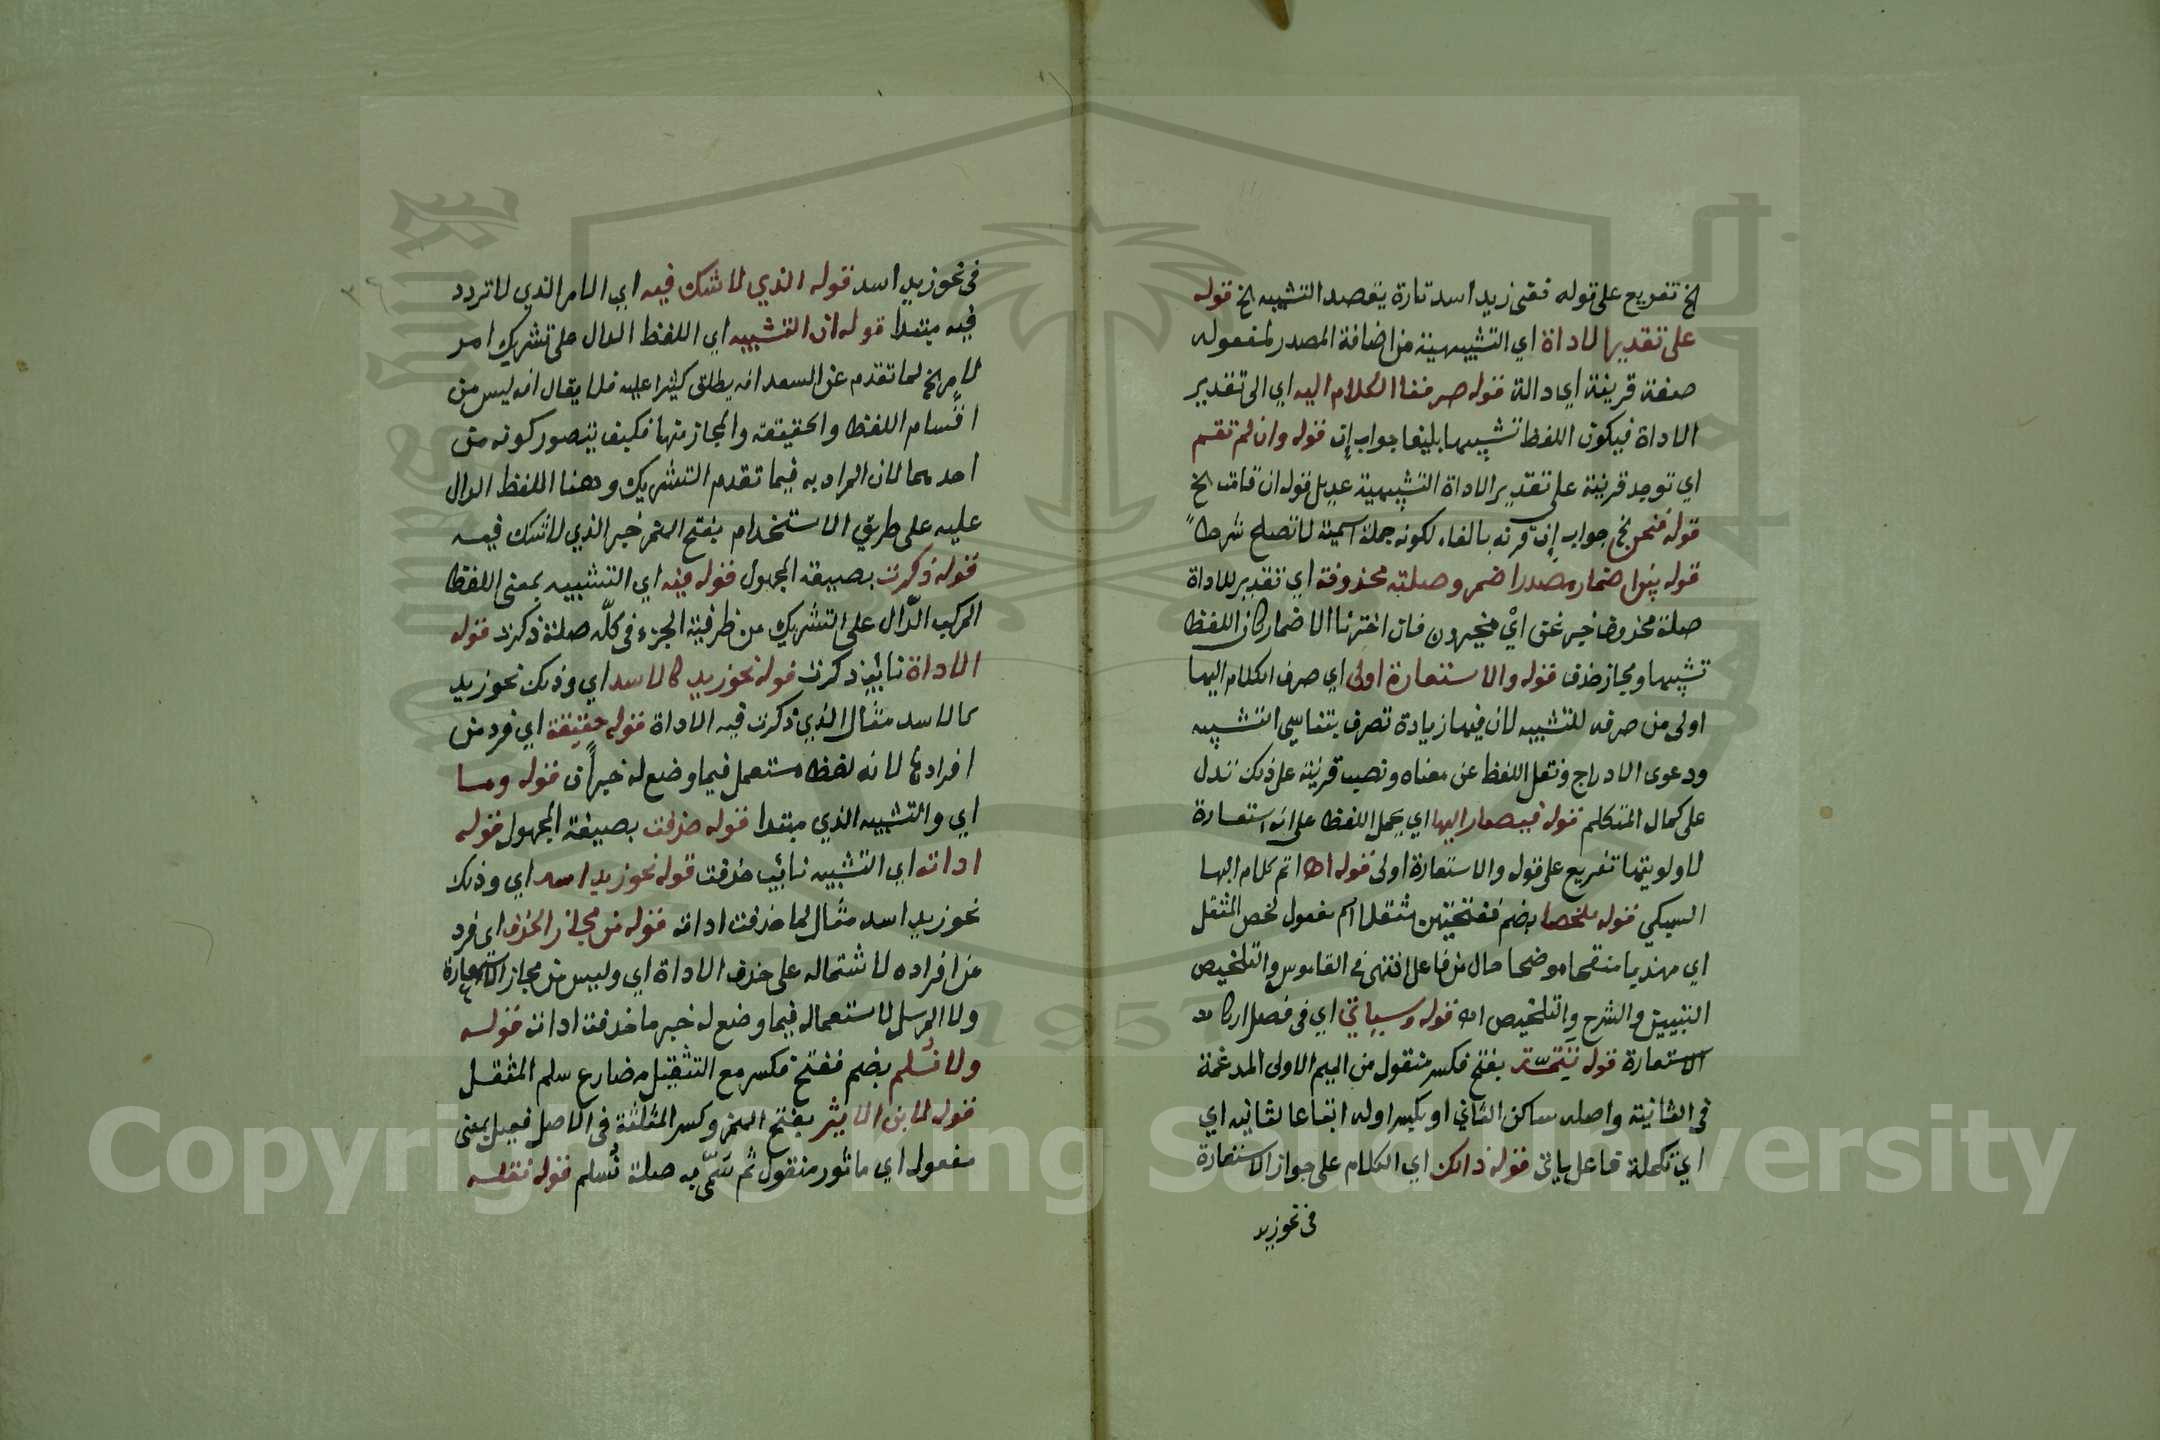 الخ تفريع على قوله ففى زيد اسد تارة يقصد التشبيه الخ قوله
على تقديرالاداة اي التشبيهية من اضافة المصدر لمفعوله
صفة قرينة اي دالة قوله صرفنا الكلام اليه اي الى تقدير
الاداة فيكون اللفظ تشبيها بليغا جواب إن قوله وان لم تقم
اي توجد قرينة على تقدير الاداة التشبيهية عديل قوله ان قامت الخ
قوله فنحن الخ جواب إن قرنه بالفاء لكونه جملة اسمية لا تصلح شرطاً
قوله بين اضمار مصدر اضمر وصلته محذوفة اي تقدير للاداة
صلة محذوف خبر نحن اي مخيرون فان اخترنا الاضمار كان اللفظ
تشبيها ومجاز حذف قوله والاستعارة اولى اي صرف الكلام اليها
اولى من صرفه للتشبيه لان فيها زيادة تصرف بتناسي التشبيه
ودعوى الادراج ونقل اللفظ عن معناه ونصب قرينة على ذلك تدل
على كمال المتكلم قوله فيصار اليها اي يحمل اللفظ على انه استعارة
لاولويتها تفريع على قوله والاستعارة اولى قوله اه اتم كلام البها
السبكي قوله ملخصا بضم ففتحتين مثقلا اسم مفعول لخص المثقل
اي مهذبا منقحا موضحا حال من فاعل انتهى في القاموس والتلخيص
التبيين والشرح والتلخيص اه قوله وسيأتي اي في فصل اركان
الاستعارة قوله تتمته بفتح فكسر منقول من الميم الاولى المدغمة
فى الثانية واصله ساكن الثاني او بكسر اوله اتباعا لثانيه اي
اي تكملة فاعل ياتى قوله ذلك اي الكلام على جواز الاستعارة
فى نحو زيد
فى نحو زيد اسد قوله الذي لا شك فيه اي الامر الذي لا تردد
فيه مبتدا قوله ان التشبيه اي اللفظ الدال على تشريك امر
لامر الخ لما تقدم عن السعد انه يطلق كثيرا عليه فلا يقال انه ليس من
اقسام اللفظ والحقيقة والمجاز منها فكيف يتصور كونه من
احدهما لان المراد به فيما تقدم التشريك وهنا اللفظ الدال
عليه على طريق الاستخدام بفتح الهمز خبر الذي لا شك فيه
قوله ذكرت بصيغة المجهول قوله فيه اي التشبيه بمعنى اللفظ
المركب الدّال على التشريك من ظرفية الجزء فى كلّه صلة ذكرت قوله
الاداة نائب ذكرت قوله نحو زيد كالاسد اي وذلك نحو زيد
كالاسد مثال الذي ذكرت فيه الاداة قوله حقيقة اي فرد من
افرادها لانه لفظ مستعمل فيما وضع له خبر أن قوله وما
اي والتشبيه الذي مبتدا قوله حذفت بصيغة المجهول قوله
اداته اي التشبيه نائب حذفت قوله نحو زيد اسد اي وذلك
نحو زيد اسد مثال لما حذفت اداته قوله من مجاز الحذف اى فرد
من افراده لاشتماله على حذف الاداة اي وليس من مجاز الاستعارة
ولا المرسل لاستعماله فيما وضع له خبر ما حذفت اداته قوله
ولا نُسلم بضم ففتح فكسر مع التثقيل مضارع سلم المثقل
قوله لابن الاثير بفتح الهمز وكسر المثلثة فى الاصل فعيل بمعنى
مفعول اي ماثور منقول ثم سَمّى به صلة نُسلم قوله نقله